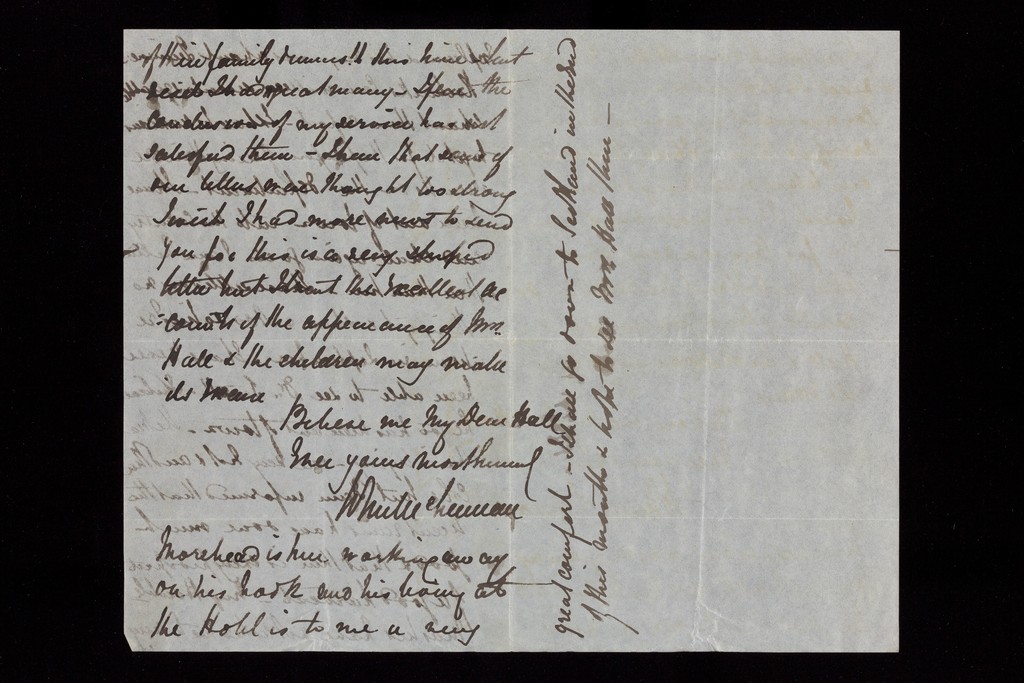 of their family dinners !! this time but
said I had great many - I fear the
conclusion of my service has not
satisfied them - I hear that some of
our letters were thought too strong
I wish I had more news to send
you for this is a very stupid
letter but I trust the excellent ac
-counts of the appearance of Mrs.
Hall & the children may make
it
Believe me My Dear Hall
Ever yours most
Morehead is here working away
on his book and his being at
the Hotl is to me a very
great comfort - I shall go down to Scotland in the End
of this month & hope to see Mrs Hall then -